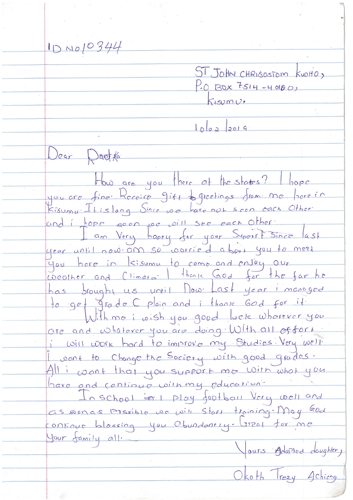 ID NO 10344
ST JOHN CHRISOSTOM KWOHO,
P.O BOX 7514-40100,
Kisumu.
10/02/2015
Dear
How are you there at the states? I hope
you are fine. Receive gift greetings from me here in
Kisumu It is long Since we have not seen each other
and i hope soon we will see each other.
I am very happy for your support since last
year until now am so worried about you to meet
you here in Kisumu to come and enjoy our
weather and Climate. I thank God for the far he
has brought us until Now Last year i managed
to get grade C plain and i thank God for it
With me i wish you good luck wherever you
are and whatever you are doing. With all effort
i will work hard to improve my Studies very well
i want to Change the Society with good grades.
All i want that you support me with what you
have and continue with my education.
In school i play football very well and
as as possible we will start training. May God
continue blessing you abundantly. Great for me
your family all.
Yours daughter,
Okoth Trezy Achieng